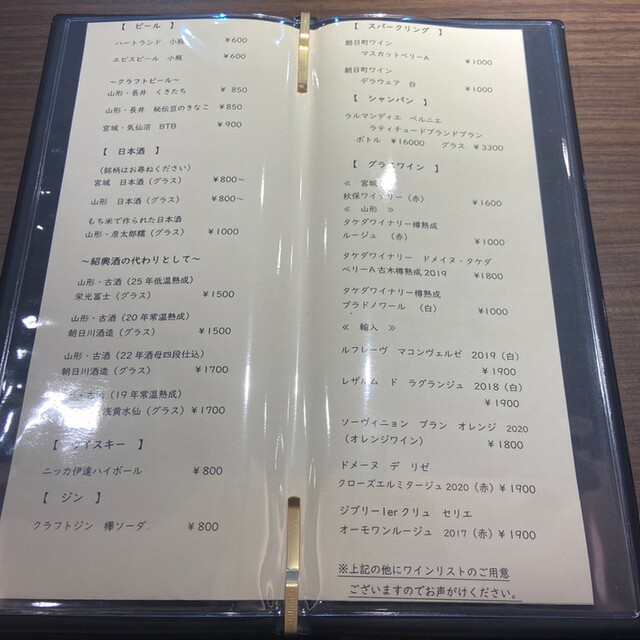 【 ビール 】
ハートランド 小瓶 ￥600
エビスビール 小瓶 ￥600
～クラフトビール～
山形・長井 くきたち ￥ 850
山形・長井 秘伝豆のきなこ ￥850
宮城・気仙沼 BTB ￥900
【 日本酒 】
（銘柄はお尋ねください）
宮城 日本酒（グラス） ￥800～
山形 日本酒（グラス） ￥800～
もち米で作られた日本酒
山形・彦太郎糯（グラス） ￥1000
～紹興酒の代わりとして～
山形・古酒（25年低温熟成）
栄光冨士（グラス） ￥1500
山形・古酒（20年常温熟成）
朝日川酒造（グラス） ￥1500
山形・古酒（22年酒母四段仕込）
朝日川酒造（グラス） ￥1700
・古酒（19年常温熟成）
浅黄水仙（グラス） ￥1700
【 イスキー 】
ニッカ伊達ハイボール ￥800
【 ジン 】
クラフトジン 欅ソーダ ￥800
【 スパークリング 】
朝日町ワイン
マスカットベリーA ￥1000
朝日町ワイン
デラウェア 白 ￥1000
【 シャンパン 】
ラルマンディエ ベルニエ
ラティチュードブランドブラン
ボトル ￥16000 グラス ￥3300
【 グラスワイン 】
≪ 宮城
秋保ワイナリー（赤） ￥1600
≪ 山形 ≫
タケダワイナリー樽熟成
ルージュ （赤） ￥1000
タケダワイナリー ドメイヌ・タケダ
ベリーA古木樽熟成2019 ￥1800
タケダワイナリー樽熟成
ブラドノワール （白） ￥1000
≪ 輸入 ≫
ルフレーヴ マコンヴェルゼ 2019（白）
￥1900
レザルム ド ラグランジュ 2018（白）
￥1900
ソーヴィニョン ブラン オレンジ 2020
（オレンジワイン） ￥1800
ドメーヌ デ リゼ
クローズエルミタージュ2020（赤）￥1900
ジブリー1erクリュ セリエ
オーモワンルージュ 2017（赤）￥1900
※上記の他にワインリストのご用意
ございますのでお声がけください。